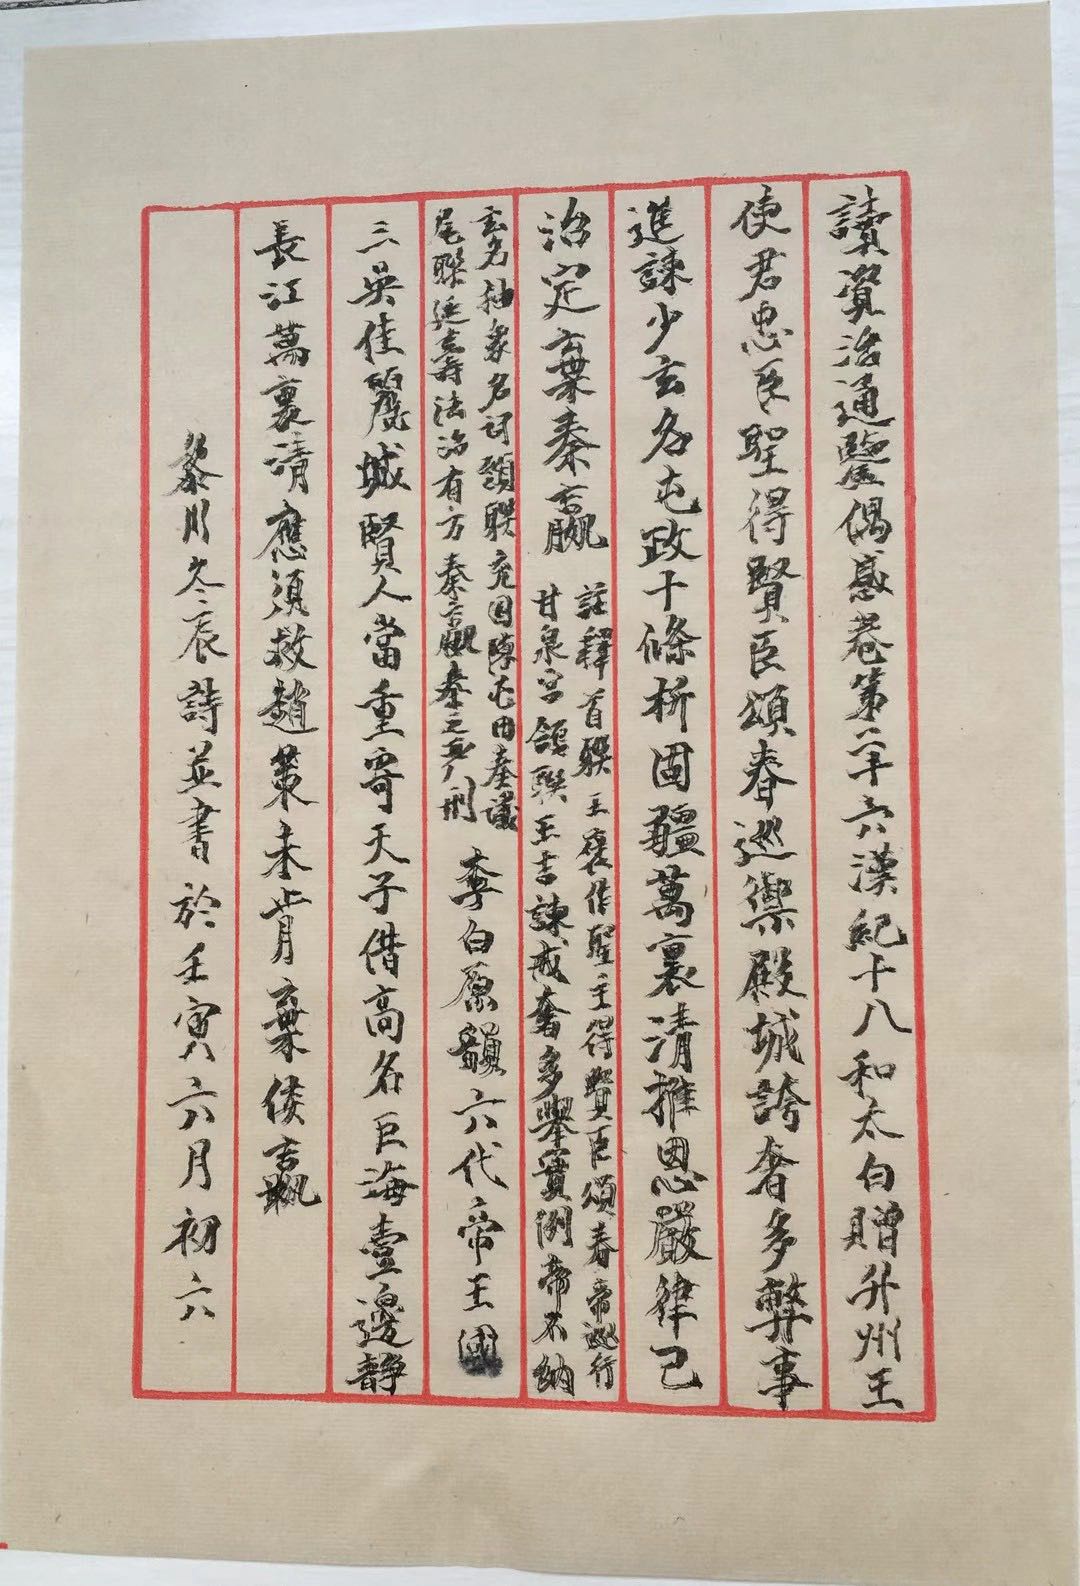 讀資治通鑒偶感卷第二十六漢紀十八和太白贈升州王
使君忠臣聖得賢臣頌春巡禦殿城誇奢多弊事
進諫少玄名屯政十條析固疆萬裏清推恩嚴律己
治定棄秦嬴
註釋首聯王褒作聖主得賢臣頌春帝巡行
甘泉宮頷聯王吉諫戒奢多舉實例帝不納
玄名抽象名詞頸聯充國陳屯田奏議
尾聯延壽法治有方秦嬴秦之嚴刑
李白原韻六代帝王國
三吳佳麗城賢人當重寄天子借高名巨海壹邊靜
長江萬裏清應須救趙策未肯棄侯嬴
黎川冬辰詩並書於壬寅六月初六